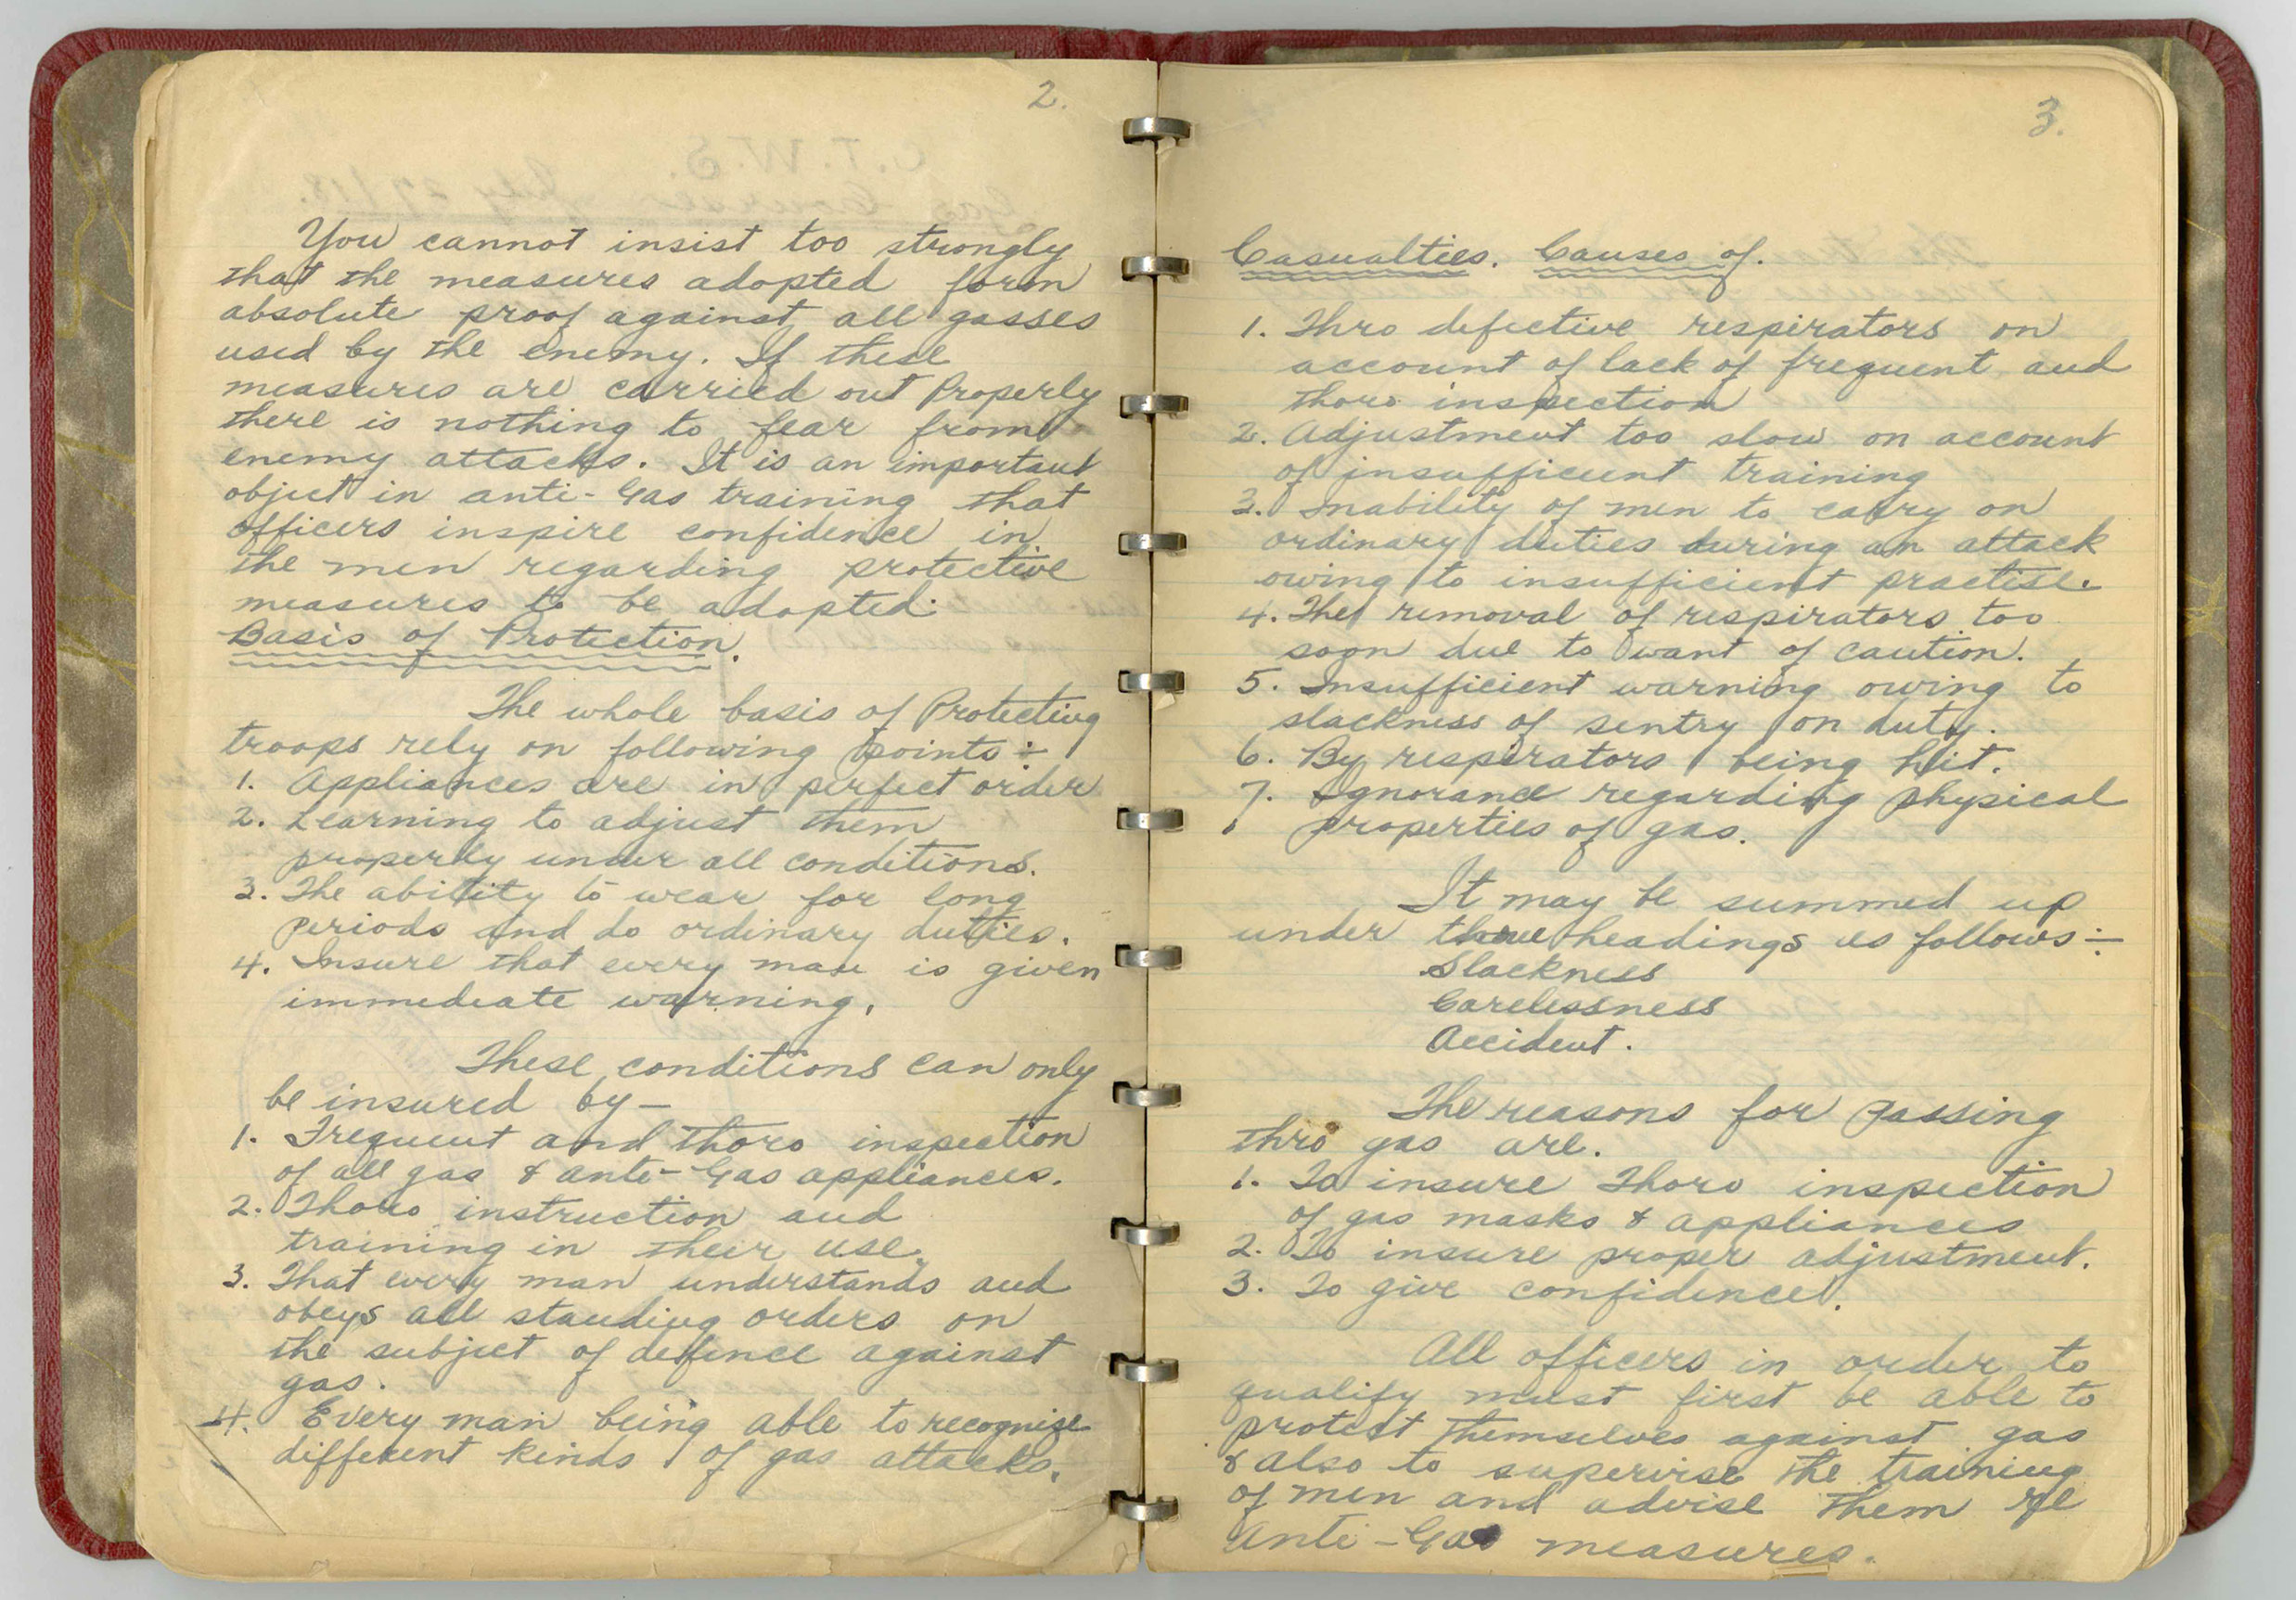 2.
You cannot insist too strongly
that the measures adopted form
absolute proof against all gasses
used by the enemy. If these
measures are carried out Properly
there is nothing to fear from
enemy attacks. It is an important
object in anti-Gas training that
officers inspire confidence in
the men regarding protective
measures to be adopted.
Basis of Protection.
The whole basis of Protecting
troops rely on following points :-
1. Appliances are in perfect order
2. Learning to adjust them
properly under all conditions.
3. The ability to wear for long
periods and do ordinary duties.
4. Insure that every man is given
immediate warning.
These conditions can only
be insured by —
1. Frequent and thoro inspection
of all gas & anti-Gas appliances.
2. Thoro instruction and
training in their use.
3. That every man understands and
obeys all standing orders on
the subject of defence against
gas.
4. Every man being able to recognize
different kinds of gas attacks.
3.
Casualties. Causes of.
1. Thro defective respirators on
account of lack of frequent and
thoro inspection
2. Adjustment too slow on account
of insufficient training
3. Inability of men to carry on
ordinary duties during an attack
owing to insufficient practise.
4. The removal of respirators too
soon due to want of caution.
5. Insufficient warning owing to
slackness of sentry on duty.
6. By respirators being hit.
7. Ignorance regarding physical
properties of gas.
It may be summed up
under three headings as follows :-
Slackness
Carelessness
Accident.
The reasons for passing
thro gas are.
1. To insure Thoro inspection
of gas masks & appliances
2. To insure proper adjustment.
3. To give confidence.
All officers in order to
qualify must first be able to
protect themselves against gas
& also to supervise the training
of men and advise them re
Anti-Gas measures.